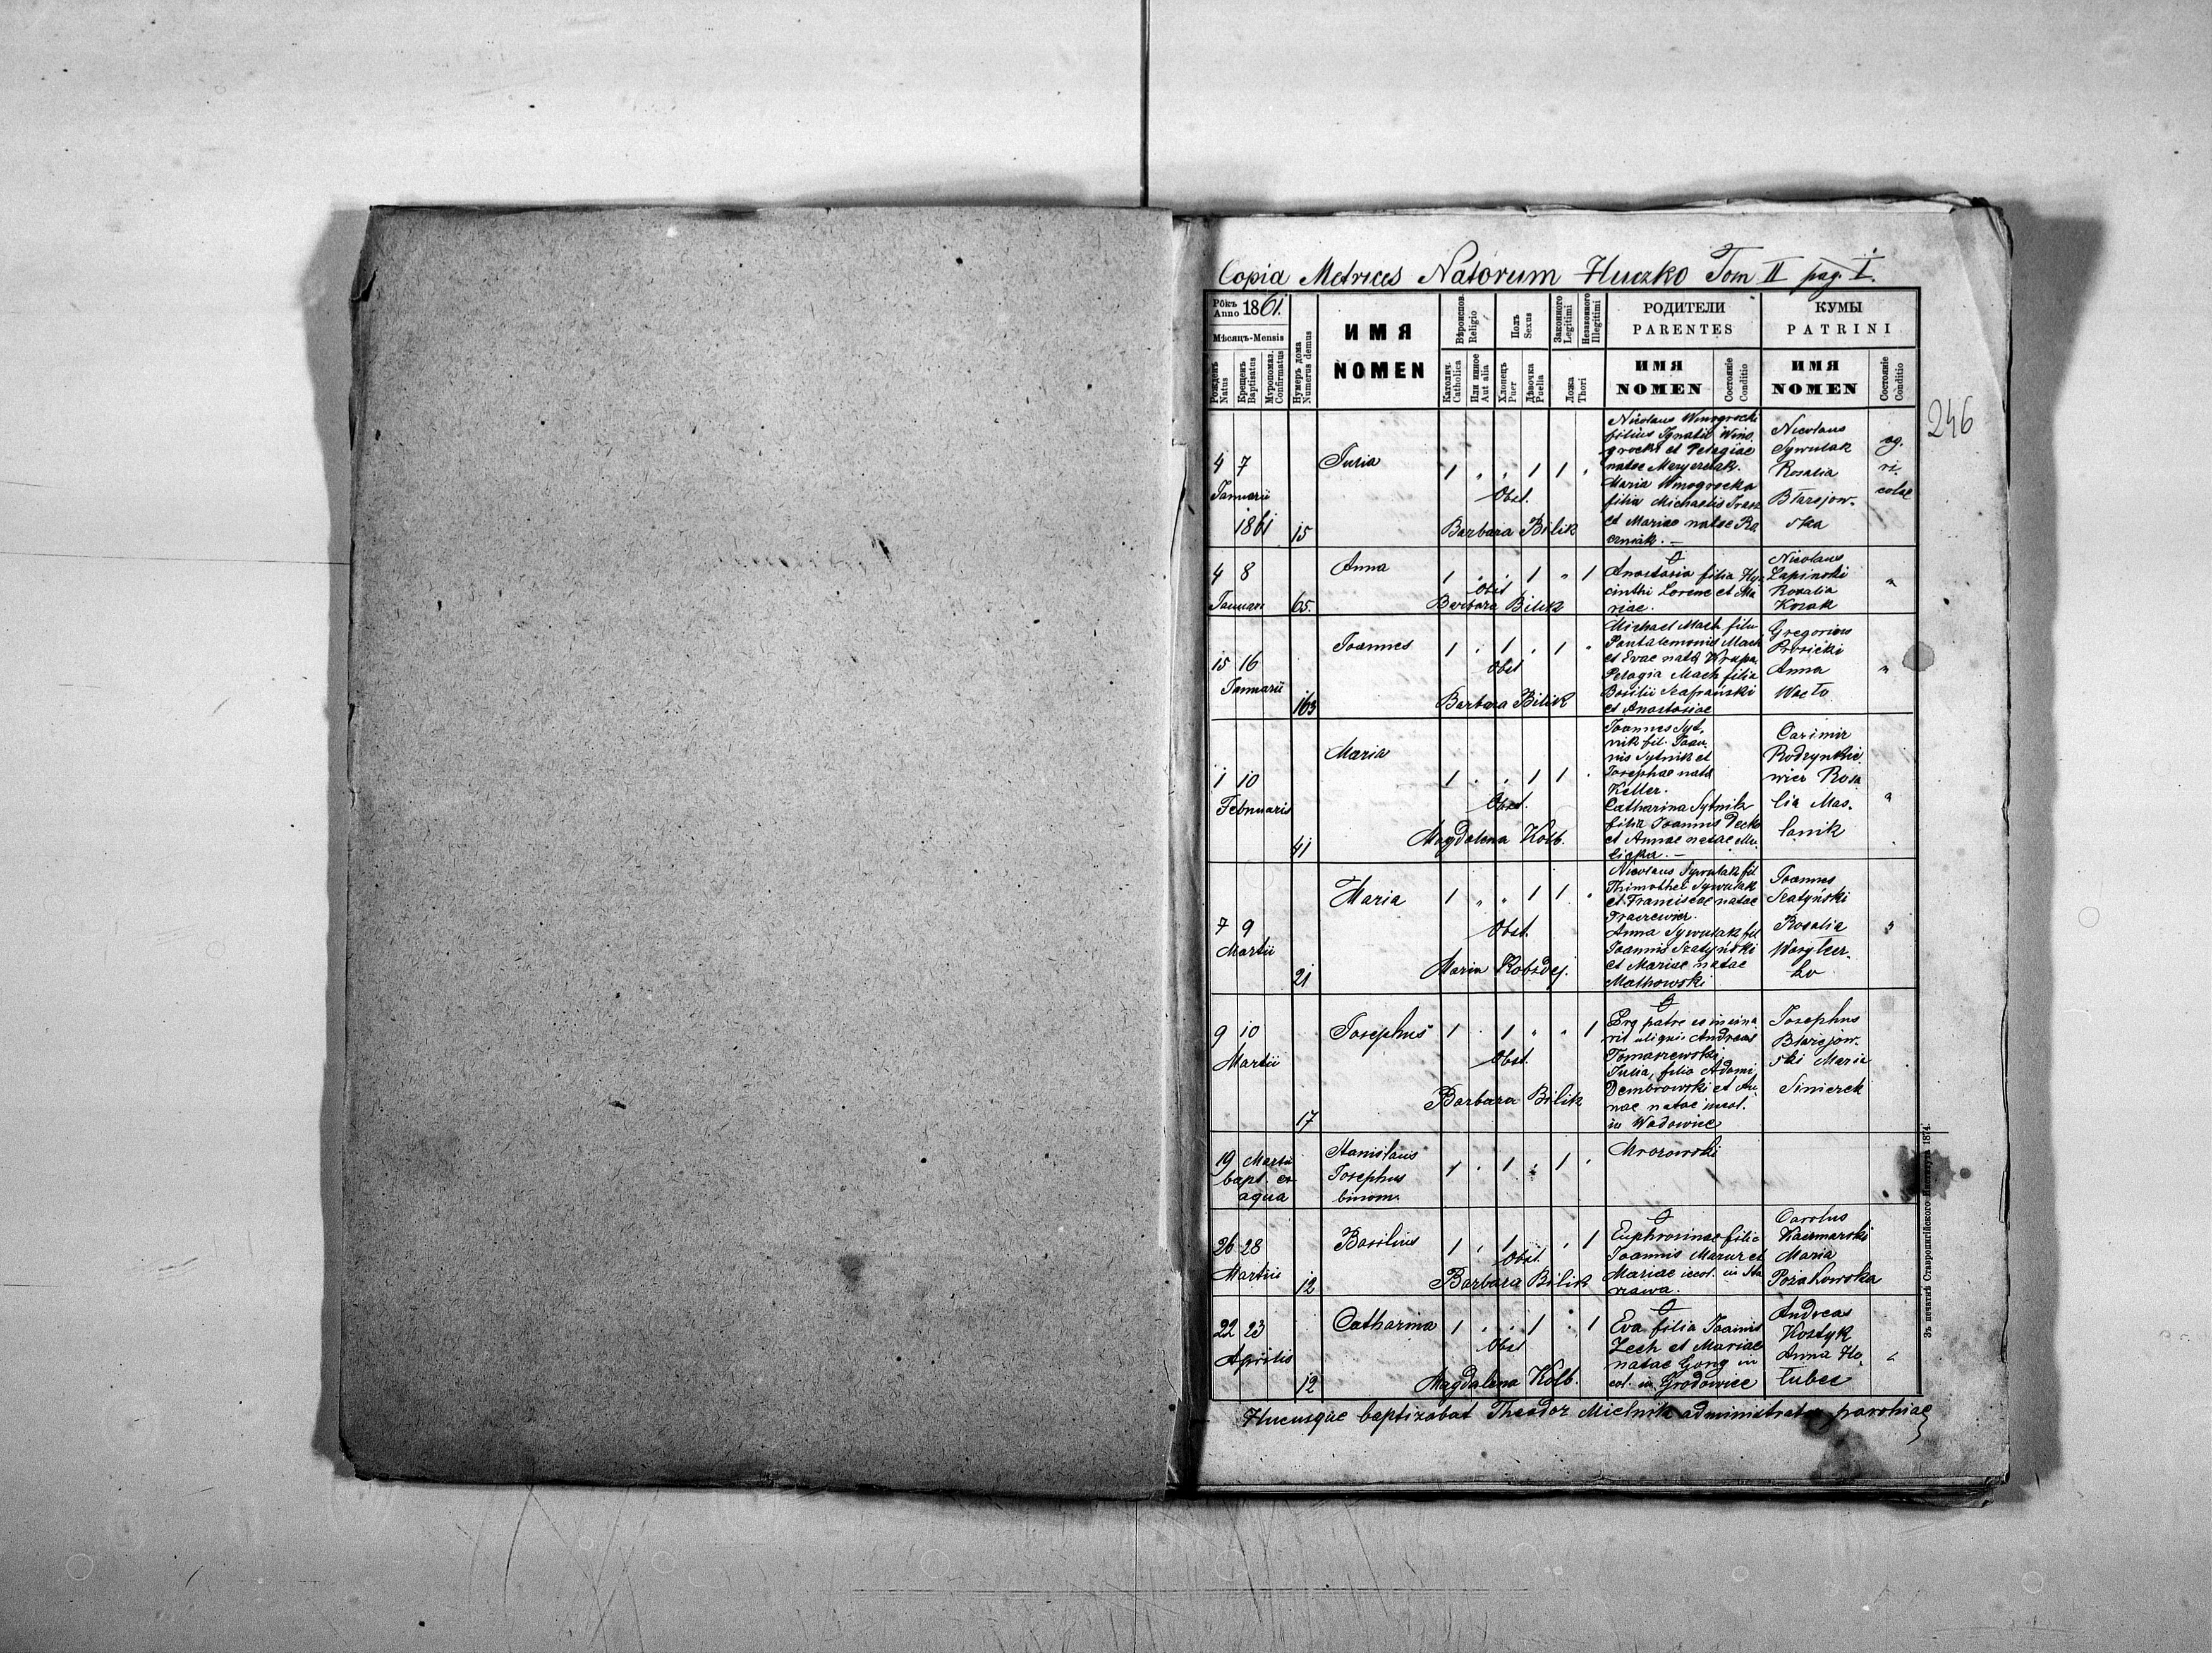 Copia Metrices Natorum Huczko Tom II pag. I.
Рôкъ Anno 1861.
Мѣсяцъ-Mensis
Рожденъ Natus
Крещенъ Baptisatus
Мѵропомаз. Confirmatus
Нумеръ дома Numerus domus
ИМЯ
NOMEN
Вѣроиспов. Religio
Католич. Catholica
Или иное Aut alia
Полъ Sexus
Хлопецъ Puer
Дѣвочка Puella
Законного Legitimi
Незаконного Illegitimi
Ложа Thori
РОДИТЕЛИ
PARENTES
ИМЯ
NOMEN
Состояніе Conditio
КУМЫ
PATRINI
ИМЯ
NOMEN
Состояніе Conditio
246
4 7
Januarii
1861 15
Juria
1 " . 1 1 .
Obst.
Barbara Bilik
Nicolaus
filius Ignatii Wino
grocki et Pelagiae
natae
Maria Winogrocka
filia Michaelis
et Mariae natae Ra
czniak. —
Nicolaus
Sywulak
Rosalia
Błarejow-
ska
ag.
ri.
colae
4 8
Januari 65.
Anna
1 . . 1 " 1
Obst
Barbara Bilik
Anastasia filia Hy
cinthi Lorenc et Ma
riae.
Nicolaus
Lapinski
Rosalia
Kozak
"
15 16
Januarii
163
Joannes
1 . 1 . 1 .
Obst
Barbara Bilik
Michael Mach filu
Pantalemonis Mach
et Evae natą
Pelagia Mach filia
Basilii Szafrański
et Anastasiae
Gregorius
Prosicki
Anna
Wacło
"
1 10
Februaris
41
Maria
1 . . 1 1 .
Obst.
Magdalena Kolb.
Joannes Syt.
nik fil. Joan.
nis Sytnik et
Josephae natą
Keller.
Catharina Sytnik
filia Joannis Decko
et Annae natae Mu
liska. —
Casimir
Rodzynkie
wicz Rosa
lia Mas.
lanik
"
7 9
Martii
21
Maria
1 " " 1 1 .
Obst.
Maria Kobsdej.
Nicolaus Sywulak fil
Thimothei Sywulak
et Franciscae natae
Anna Sywulak fil
Joannis Szatyński
et Mariae natae
Mathowski
Joannes
Szatyński
Rosalia
"
9 10
Martii
17
Josephus
1 . 1 " " 1
Obst.
Barbara Bilik
Pro patre
rit aliquis Andreas
Tomaszewski,
Julia, filia Adami
Dembrowski et An
nae natae incol.
in Wadowice
Josephus
Błarejow.
ski Maria
Sinierek
19 Martii
bapt. ex
aqua
Stanislaus
Josephus
binom.
1 . 1 . 1 .
Mrozowski
26 28
Martii
12
Basilius
1 . 1 . 1
Obst.
Barbara Bilik
Euphrosinae filia
Joannis Mazur et
Mariae incol. in Sta
rzawa.
Carolus
Kaczmarski
Maria
Pożakowska
22 23
Aprilis
12
Catharina
1 . . 1 . 1
Obst
Magdalena Kolb.
Eva filia Joannis
Zech et Mariae
natae Gong in
col. in Grodowice
Andreas
Kostyk
Anna Ho.
lubec
"
Hucusque baptizabat Theodor Mielnik administrator parohiae
Зъ печатнѣ Ставропигійского Института 1874.